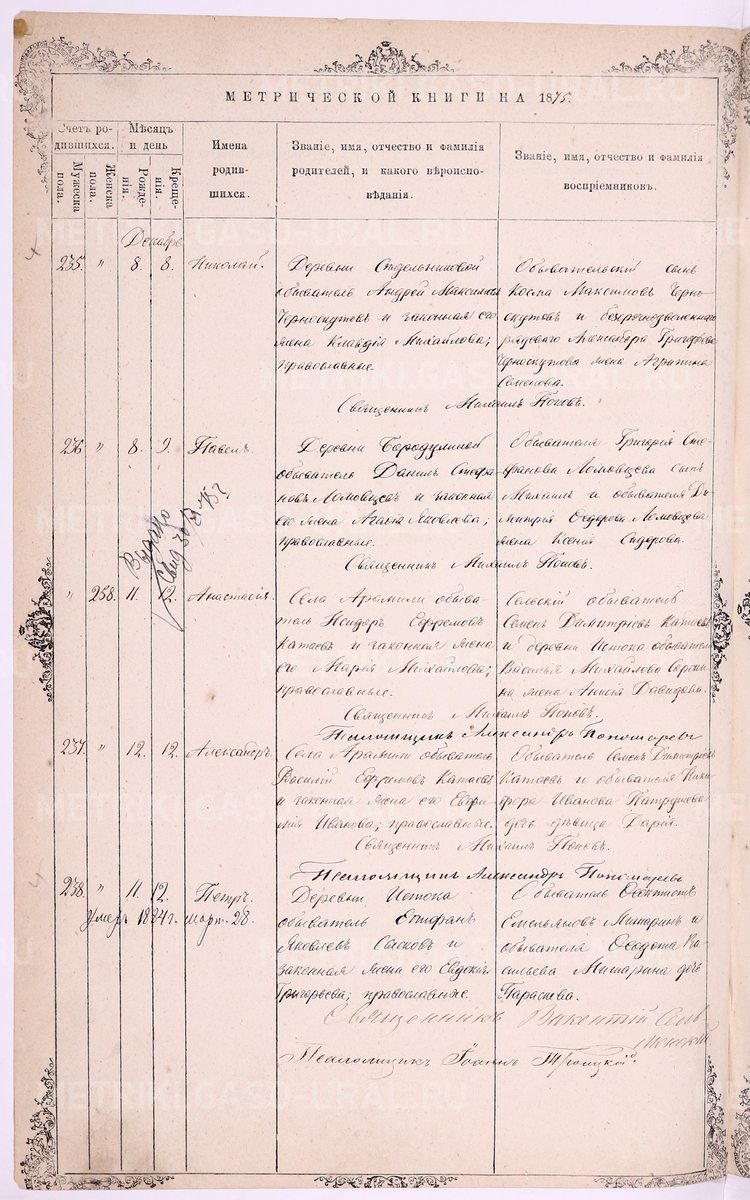 МЕТРИЧЕСКОЙ КНИГИ НА 1875.
Счетъ родившихся.
Мужеска пола.
Женска пола.
Мѣсяцъ и день
Рожденія.
Крещенія.
Имена родившихся.
Званіе, имя, отчество и фамилія
родителей, и какого вѣроиспо-
вѣданія.
Званіе, имя, отчество и фамилія
воспріемниковъ.
Декабрь
235. " 8. 8. Николай.
Деревни
обыватель Андрей Максимовъ
Черноскутовъ и законная его
жена Клавдія Михайлова;
православные.
Обывательскій сынъ
Косма Максимовъ Черно-
скутовъ и безсрочноотпускнаго
рядового Александра Григорьева
Черноскутова жена Агрипина
Семенова.
Священникъ Михаилъ Поповъ.
236 " 8. 9. Павелъ.
Деревни Бородулиной
обыватель Даніилъ Стефа-
новъ Ломовцевъ и законная
его жена Агафія Яковлева;
православные.
Обывателя Григорія Сте-
фанова Ломовцева сынъ
Михаилъ и обывателя Ди-
митрія Федорова Ломовцева
жена Ксенія Сидорова.
Священникъ Михаилъ Поповъ.
Выдано
" 258. 11. 12. Анастасія.
Села Арамили обыва-
тель Исидоръ Ефремовъ
Катаевъ и законная жена
его Марія Михайлова;
православные.
Сельскій обыватель
Семенъ Димитріевъ Катаевъ
и деревни Истока обывателя
Василья Михайлова Сороки-
на жена Анисія Давидова.
Священникъ Михаилъ Поповъ.
Псаломщикъ Александръ Пономаревъ
237. " 12. 12. Александръ.
Села Арамили обыватель
Василій Ефремовъ Катаевъ
и законная жена его Евфи-
мія Иванова; православные.
Обыватель Семенъ Димитріевъ
Катаевъ и обывателя Ники-
фора Иванова Патрушева
дочь дѣвица Дарія.
Священникъ Михаилъ Поповъ.
Псаломщикъ Александръ Пономаревъ
238. " 11. 12. Петръ.
Умеръ 1884г. март. 28.
Деревни Истока
обыватель Епифанъ
Яковлевъ Сысковъ и
законная жена его Евдокія
Григорьева; православные.
Обыватель Феоктистъ
Емельяновъ Мишаринъ и
обывателя Феодота Ва-
сильева Мишарина дочь
Параскева.
Священникъ Викентій
Псаломщикъ Іоаннъ Троицкій.